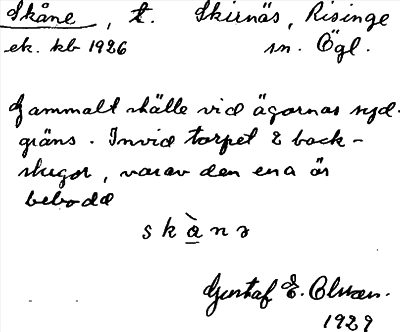 Skåne, t. Skirnäs, Risinge
ek. kb 1926 sn. Ögl.
Gammalt ställe vid ägornas syd-
gräns. Invid torpet 2 back-
stugor, varav den ena är
bebodd
skànə
Gustaf E. Olsson.
1929